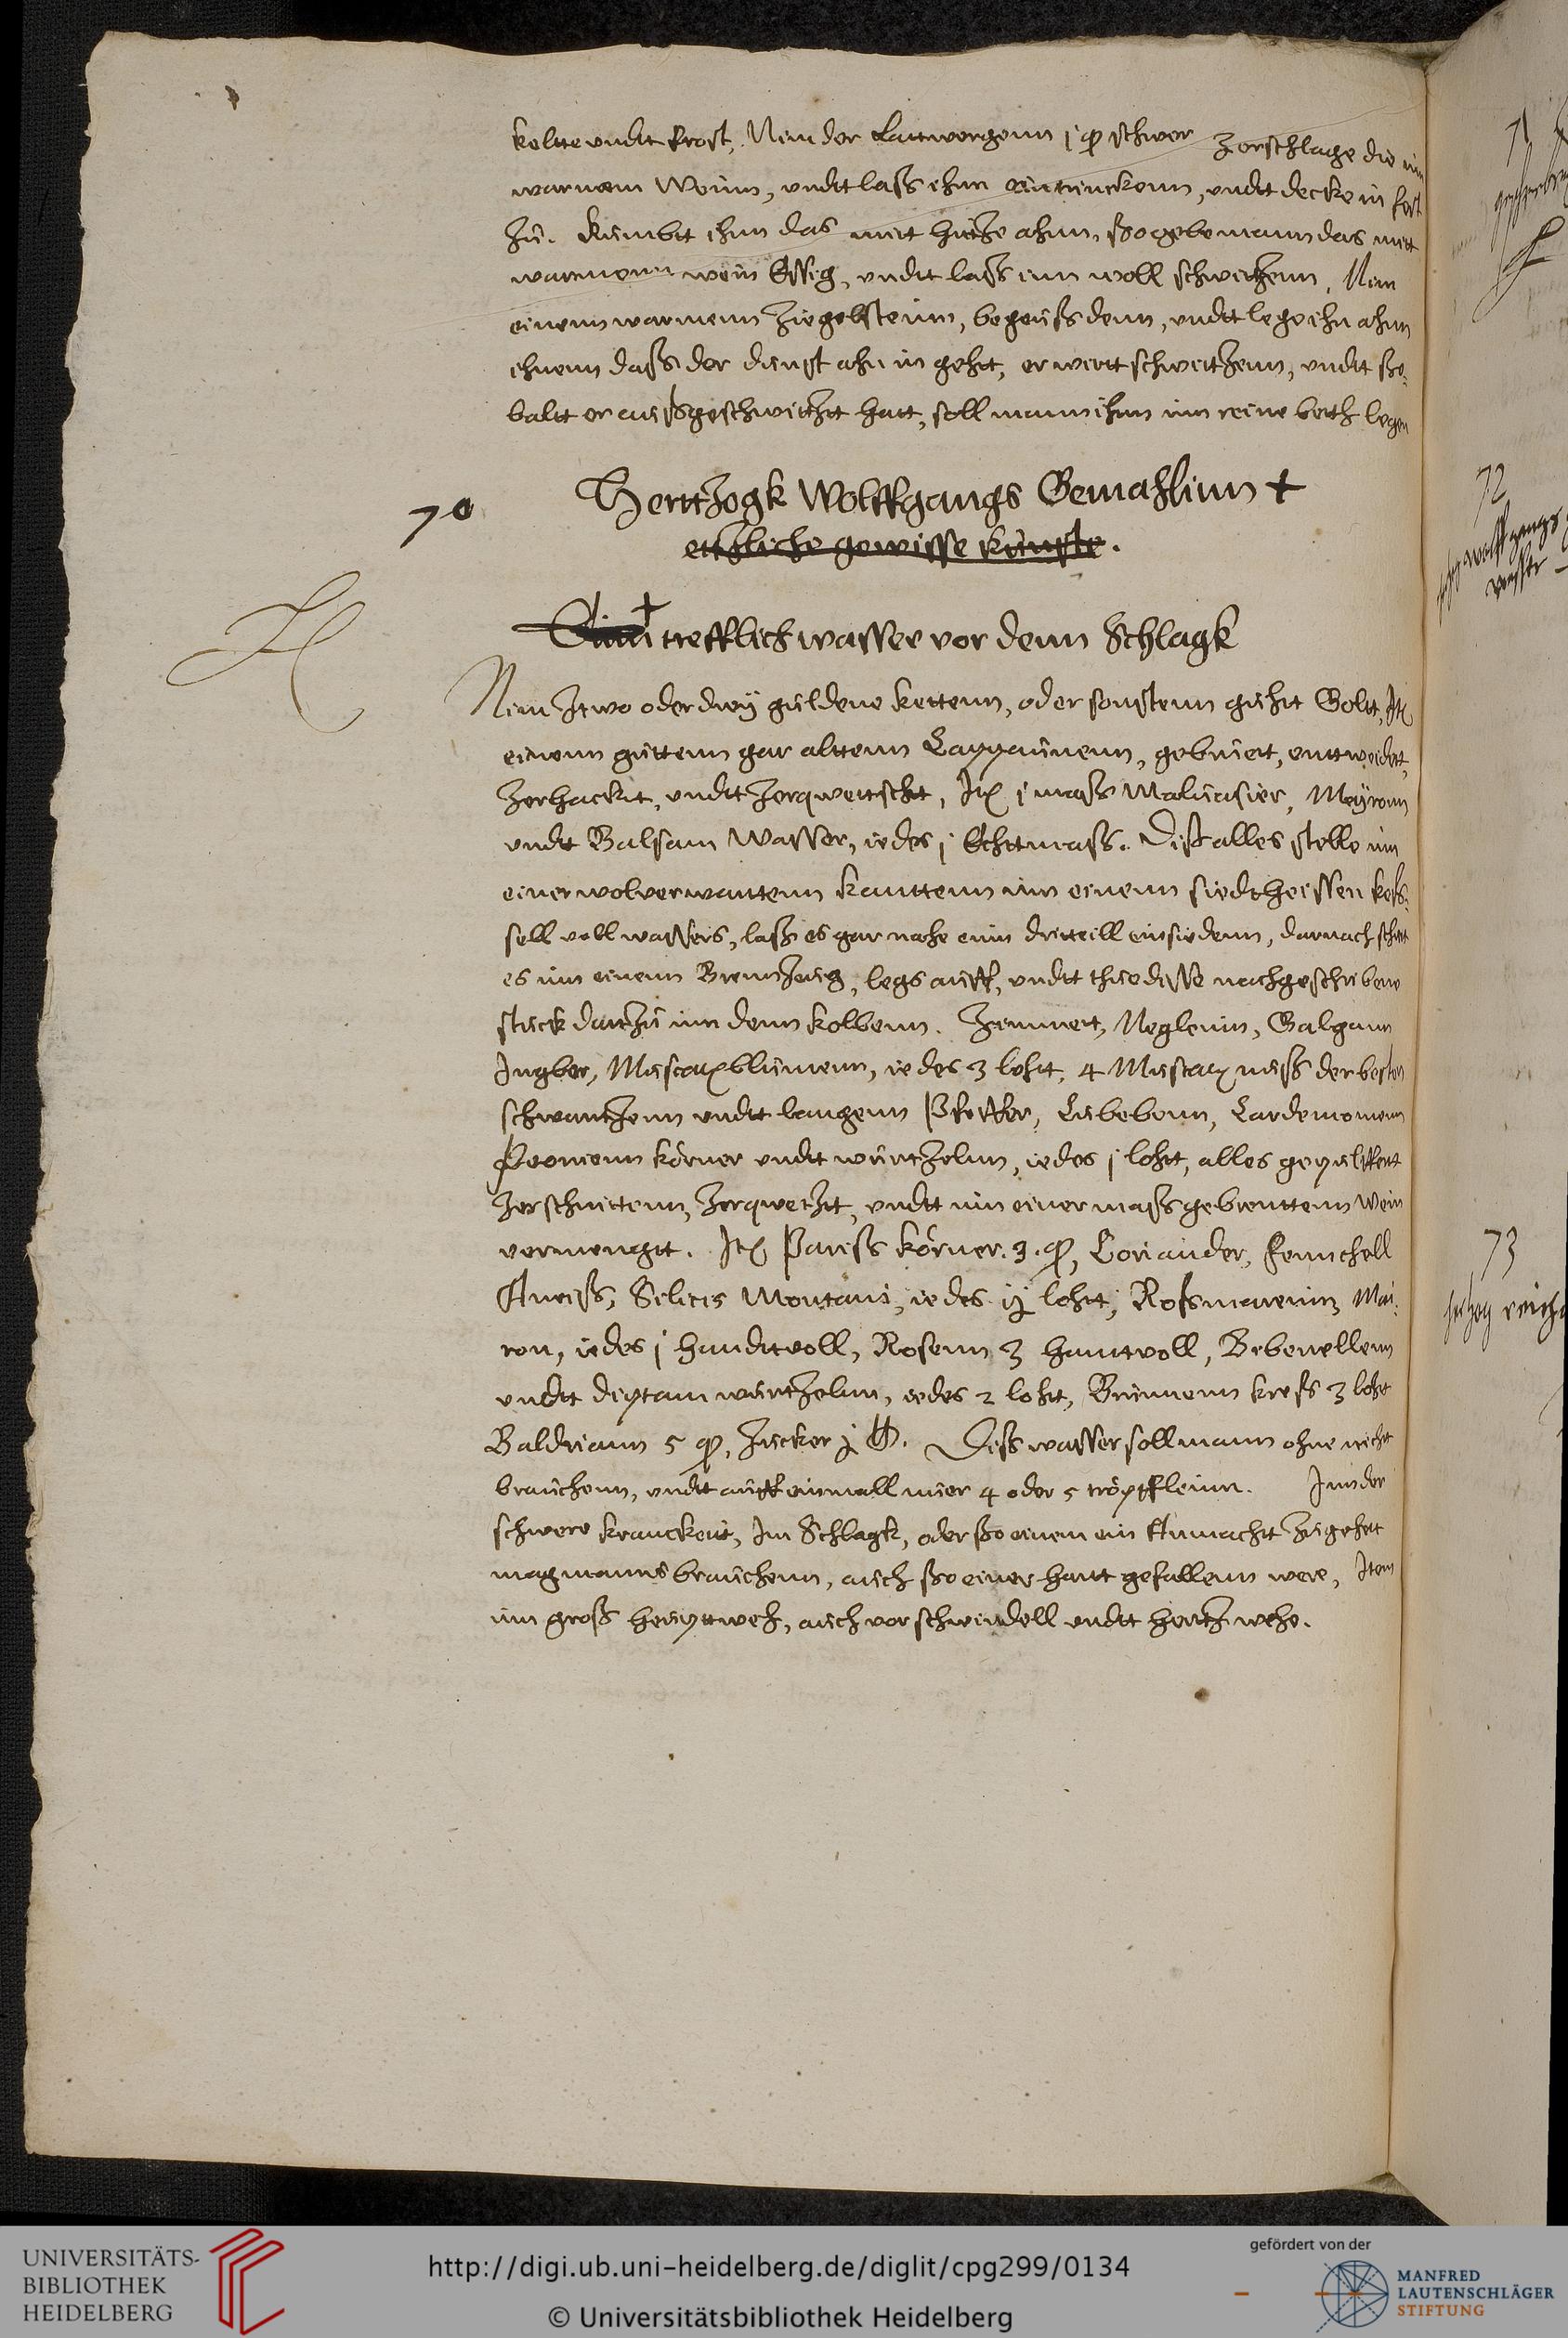 keltte vndtt frost, Nim der Lattwergenn j qͦ schwer Zerschlage die im
warmem Weinn, vndtt lass ihnn austrinckenn, vndtt decke in fest
zu. Kumbtt ihnn das mitt hitze ahnn, sso gebe mann das mitt
warmenn wein Essig, vndtt lass inn woll schwitzenn, Nim
einenn warmenn Ziegelsteinn, begeuss denn, vndtt lege ihn ahnn
ihnenn dass der dunst ahn in gehtt, er wirtt schwitzenn, vndtt sso-
baltt er aussgeschwitztt hatt, soll mann ihnn inn reine beth legen
70
Herttzogk Wolffgangs Gemahlinn +
ettzliche gewisse kunste.
Einn trefflich wasser vor denn Schlagk
Nim Ztwo oder drey guldene kettenn, oder sonstenn guhtt Goltt, Itē
einenn guttenn gar alttenn Cappaunenn, geburt, enttweidtt,
Zerhacktt, vndtt Zerqwettschtt, Itē j mass Maluasier, Meyronn
vndtt Balsam Wasser, iedes j Echttmass. Diss alles stelle inn
einer wolverwantenn kanttenn inn einenn siedtheissen kes-
sell voll wassers, lass es gar nahe einn dritteill einsiedenn, darnach schütt
es inn einenn Brennzeug, legs auff, vndtt thue disse nachgeschribene
stuck dartzu inn denn kolbenn. Zimmett, Neglenn, Galgann
Ingber, Muscattblumenn, iedes 3 lohtt, 4 Muscatt nuss der besten
schwartzenn vndtt langenn Pfeffer, Cubebenn, Cardemomenn
Peonienn körner vndtt wurtzelnn, iedes j lohtt, alles gepulffertt
Zerschnittenn, Zerqwetztt, vndtt inn einer mass gebranttenn Wein
vermengtt. Itē Pariss körner 3 qͦ, Coriander, Fennchell
Aneiss, Sileris Montani, iedes ij lohtt, Rossmarein, Mai-
ron, iedes j handttvoll, Rosenn 3 hanttvoll, Bebenellenn
vndtt diptam wurtzelnn, iedes 2 lohtt, Brunnenn kress 3 lohtt
Baldriann 5 qͦ, Zucker j ℔. Diss wasser soll mann ohne nicht
brauchenn, vndtt auff einmall nuer 4 oder 5 tröpffleinn. Inn der
schwere kranckeit, Im Schlagk, oder sso einem ein Anmacht Zugehtt
mag manns brauchenn, auch sso einer hartt gefallenn were, Item
inn gross heupttweh, auch vor schwindell vndtt hertz wehe.
71
72
73
UNIVERSITÄTS-
BIBLIOTHEK
HEIDELBERG
http://digi.ub.uni-heidelberg.de/diglit/cpg299/0134
© Universitätsbibliothek Heidelberg
gefördert von der
MANFRED
LAUTENSCHLÄGER
STIFTUNG